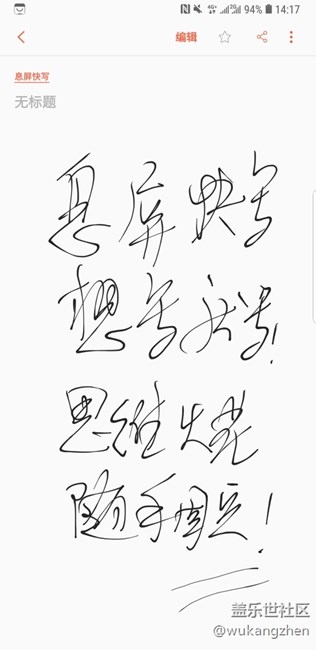 94% 14:17
编辑
息屏快写
无标题
息屏快写
想写就写!
思维火花
随手周见!
盖乐世社区
@wukangzhen